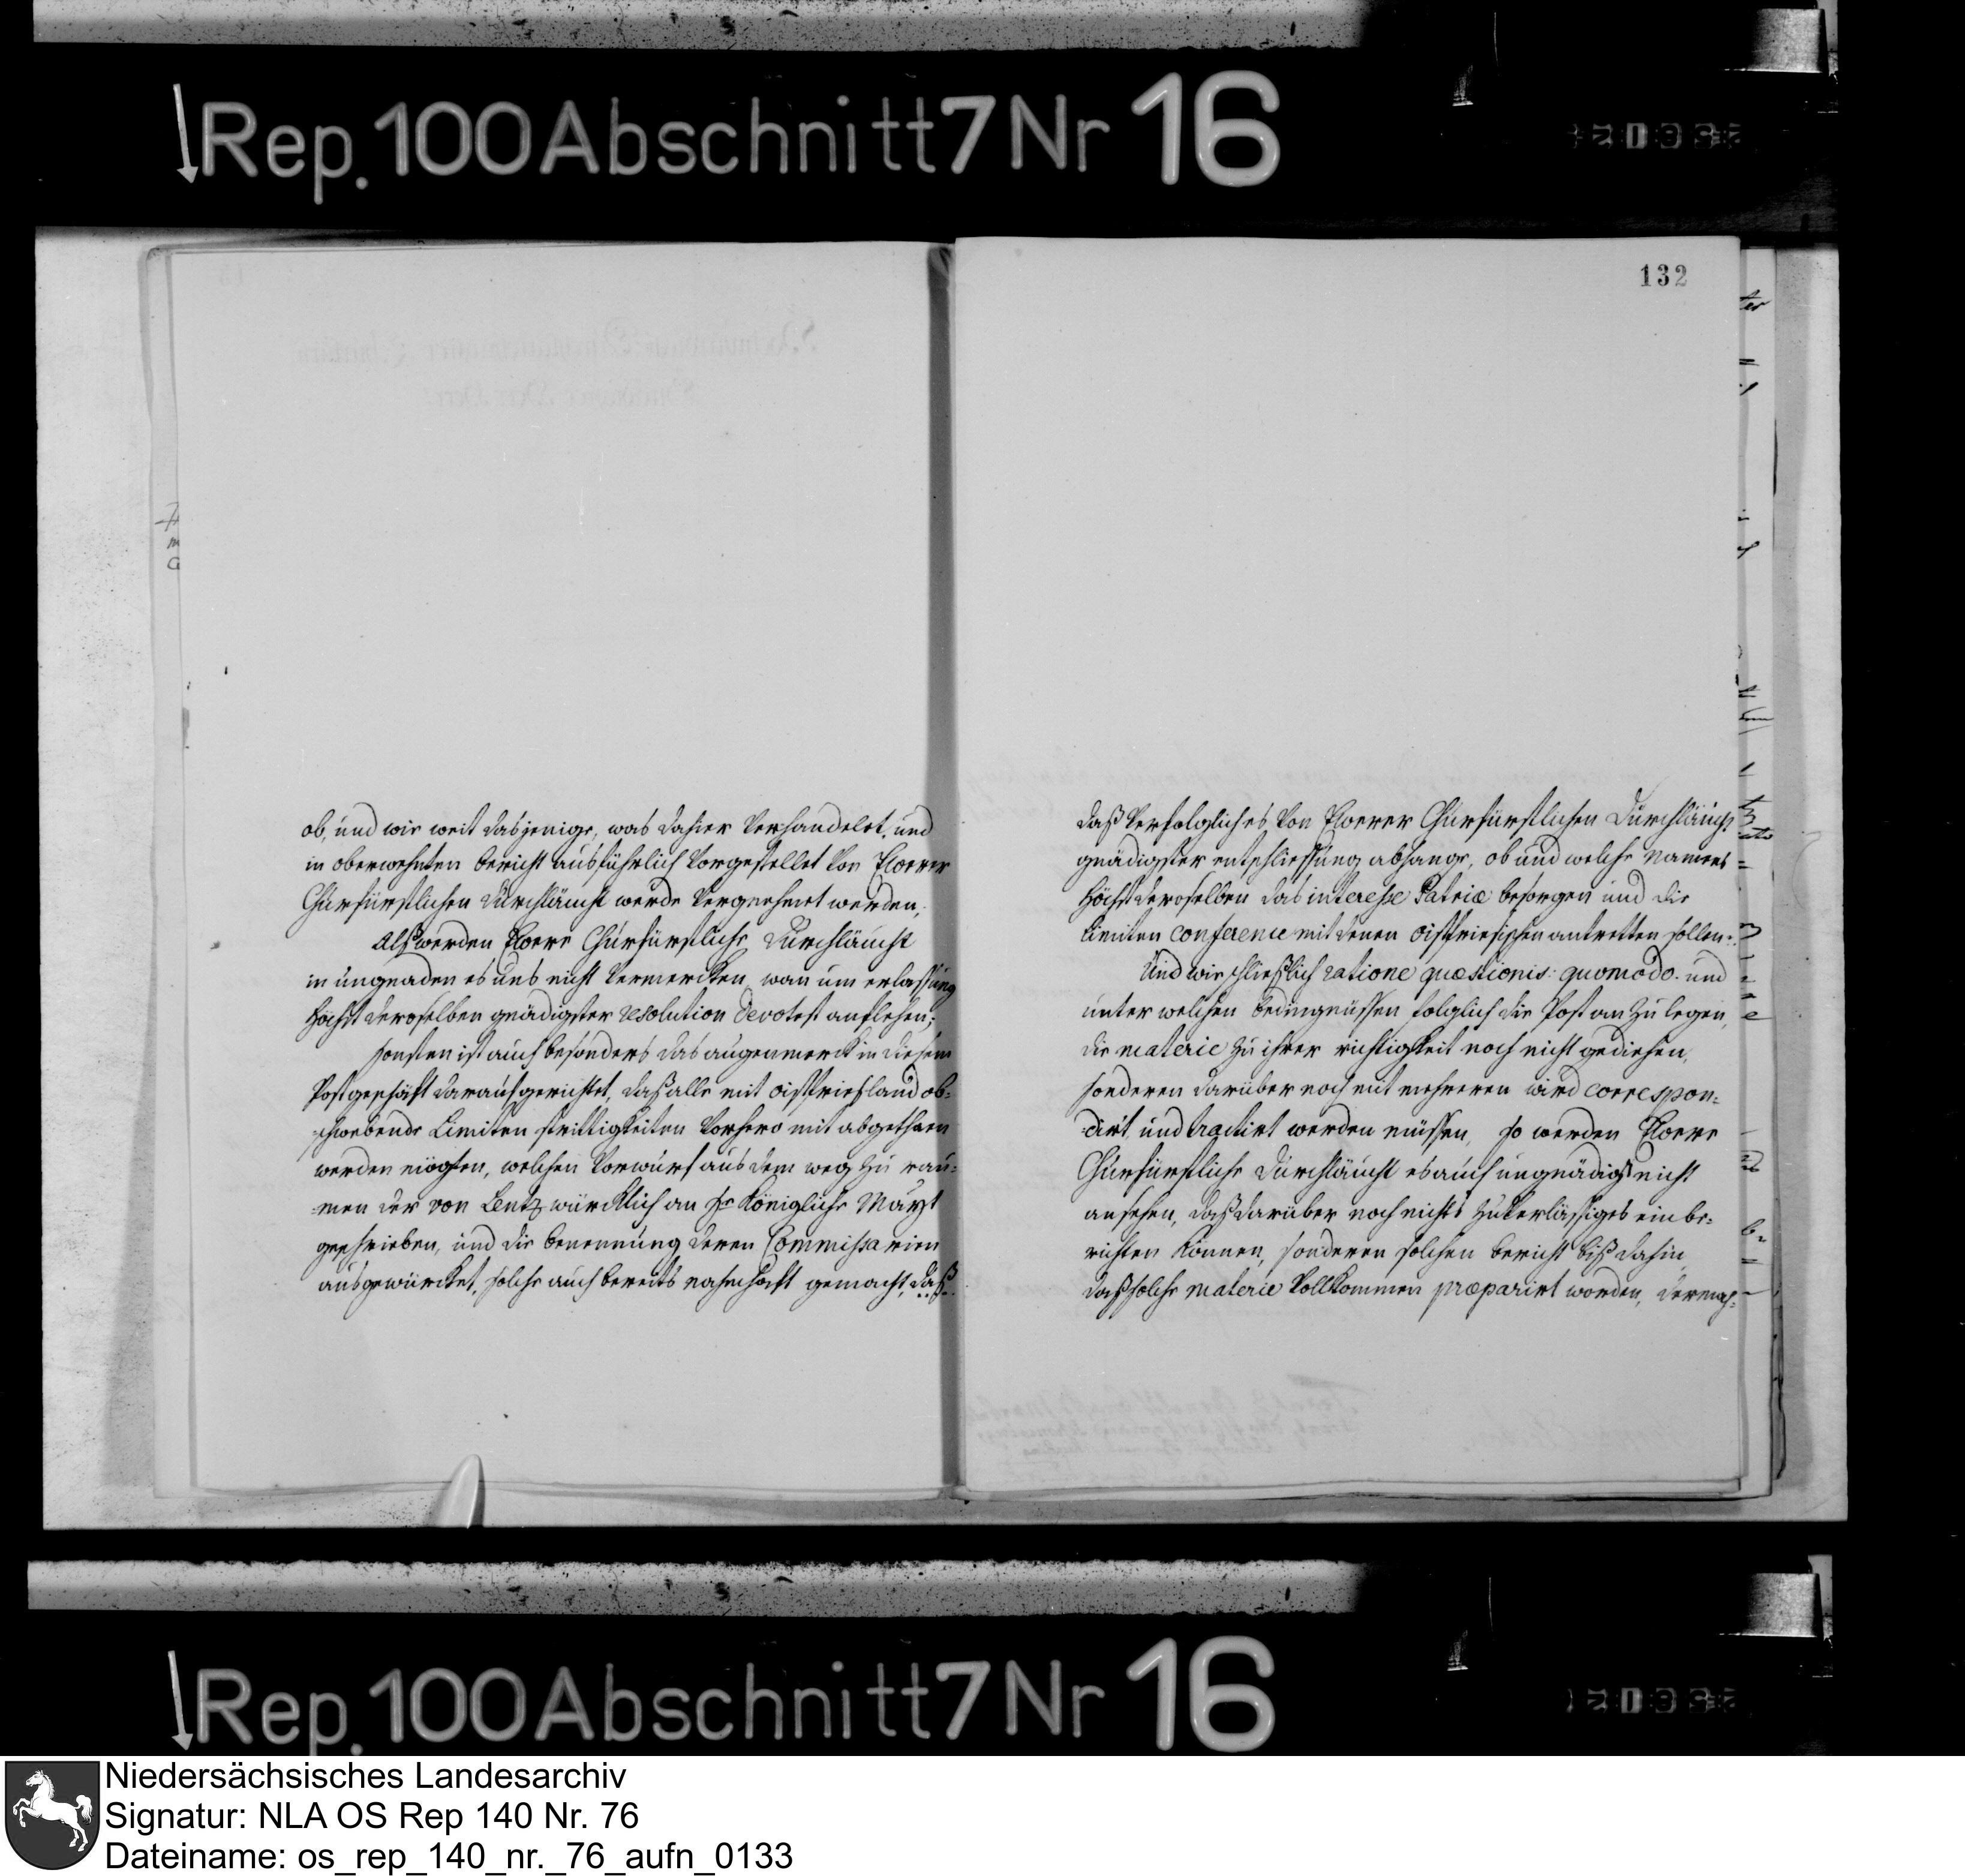 Rep. 100 Abschnitt 7 Nr 16
ob, und wie weit dasjenige, was dahier verhandelet, und
in oberwehnten bericht ausführlich vorgestellet von Ewerer
Churfürstlichen Durchläucht werde vergnehmet werden,
Alß werden Ewere Churfürstliche Durchläucht
in ungnaden es uns nicht vermercken, wan um erlassung
höchst deroselben gnädigster resolution devotest anflehen;
sonsten ist auch besonders das augenmerck in diesem
Postgeschäft darauf gerichtet, daß alle mit oistfriesland ob=
schwebende Limiten strittigkeiten vorhero mit abgethaen
werden mögten, welchen vorwurf aus dem weg zu rau=
men der von Lentz würcklich an Se Königliche Mayt
geschrieben, und die benennung deren Commissarien
ausgewürcket, solche auch bereits nahmhaft gemacht, daß
132
daß verfolglich es von Ewerer Churfürstlichen Durchläucht
gnädigster entschliessung abhange, ob und welche namens
höchst deroselben das interesse Patriæ besorgen und die
limiten conference mit denen oistfriesischen antretten sollen.
Und wie schließlich ratione quæstionis: quomodo. und
unter welchen bedingnüssen folglich die Post an zu legen,
die materie zu ihrer richtigkeit noch nicht gediehen,
sonderen darüber noch mit mehreren wird correspon=
dirt, und tractirt werden müssen, so werden Ewere
Churfürstliche Durchläucht es auch ungnädigst nicht
ansehen, daß darüber noch nichts zuverlässiges ein be=
richten können, sonderen solchen bericht biß dahin
daß solche materie vollkommen præparirt worden, dermas=
Rep. 100 Abschnitt 7 Nr 16
Niedersächsisches Landesarchiv
Signatur: NLA OS Rep 140 Nr. 76
Dateiname: os_rep_140_nr._76_aufn_0133